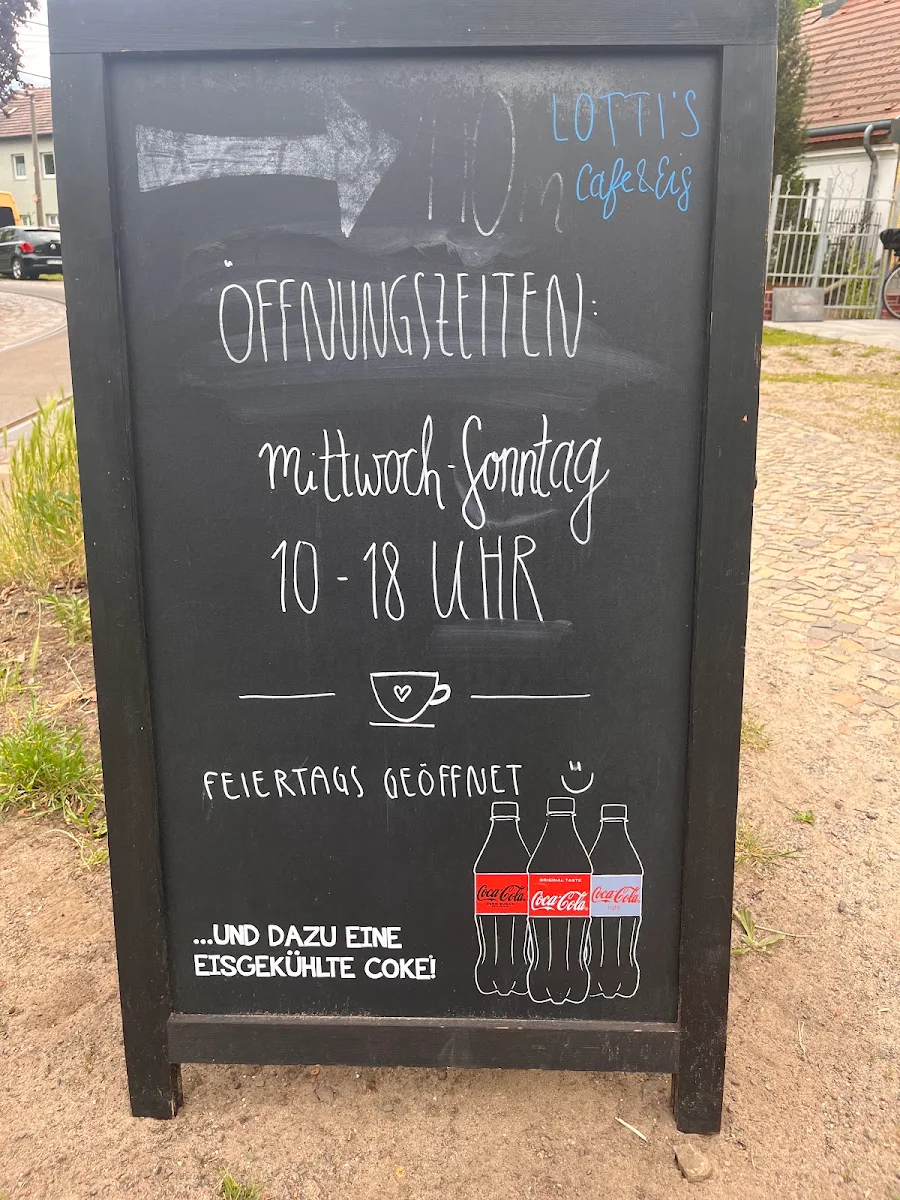 110 m
LOTTI'S
Cafe & Eis
ÖFFNUNGSZEITEN:
Mittwoch - Sonntag
10 - 18 UHR
FEIERTAGS GEÖFFNET
...UND DAZU EINE
EISGEKÜHLTE COKE!
Coca-Cola
ORIGINAL TASTE
Coca-Cola
Coca-Cola
light